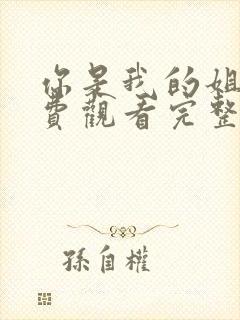 你是我的姐
費觀看完整
孫自權